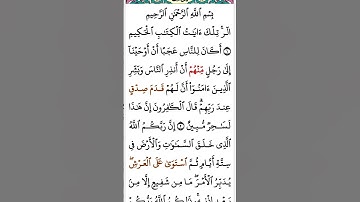 بِسْمِ ٱللَّهِ ٱلرَّحْمَٰنِ ٱلرَّحِيمِ
الٓرۚ تِلْكَ ءَايَٰتُ ٱلْكِتَٰبِ ٱلْحَكِيمِ
۝١ أَكَانَ لِلنَّاسِ عَجَبًا أَنْ أَوْحَيْنَآ
إِلَىٰ رَجُلٍ مِّنْهُمْ أَنْ أَنذِرِ ٱلنَّاسَ وَبَشِّرِ
ٱلَّذِينَ ءَامَنُوٓا۟ أَنَّ لَهُمْ قَدَمَ صِدْقٍ
عِندَ رَبِّهِمْۗ قَالَ ٱلْكَٰفِرُونَ إِنَّ هَٰذَا
لَسَٰحِرٌ مُّبِينٌ ۝٢ إِنَّ رَبَّكُمُ ٱللَّهُ
ٱلَّذِى خَلَقَ ٱلسَّمَٰوَٰتِ وَٱلْأَرْضَ فِى
سِتَّةِ أَيَّامٍ ثُمَّ ٱسْتَوَىٰ عَلَى ٱلْعَرْشِۖ
يُدَبِّرُ ٱلْأَمْرَۖ مَا مِن شَفِيعٍ إِلَّا مِنۢ